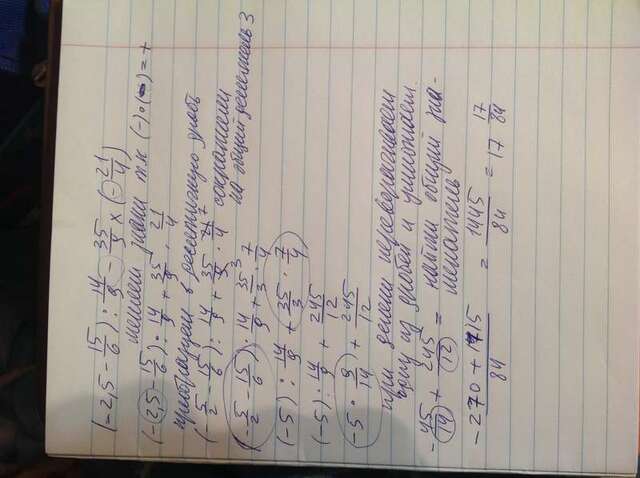 (-2,5 - 15/6) : 14/9 - 35/9 x (- 21/4)
меняем знаки т.к (-)•(-) = +
(-2,5 - 15/6) : 14/9 + 35/9 · 21/4
преобразуем в десятичную дробь
(- 5/2 - 15/6) : 14/9 + 35/9 · 21/4 7 сократили
3 на общий делитель 3
(- 5/2 - 15/6) : 14/9 + 35/3 · 7/4
(-5) : 14/9 + 35/3 · 7/4
(-5) : 14/9 + 245/12
-5 · 9/14 + 245/12
при делени переворачиваем
одну из дробей и умножаем.
- 45/14 + 245/12 = найти общий зна-
менатель
-270 + 1715/84 = 1445/84 = 17 17/84